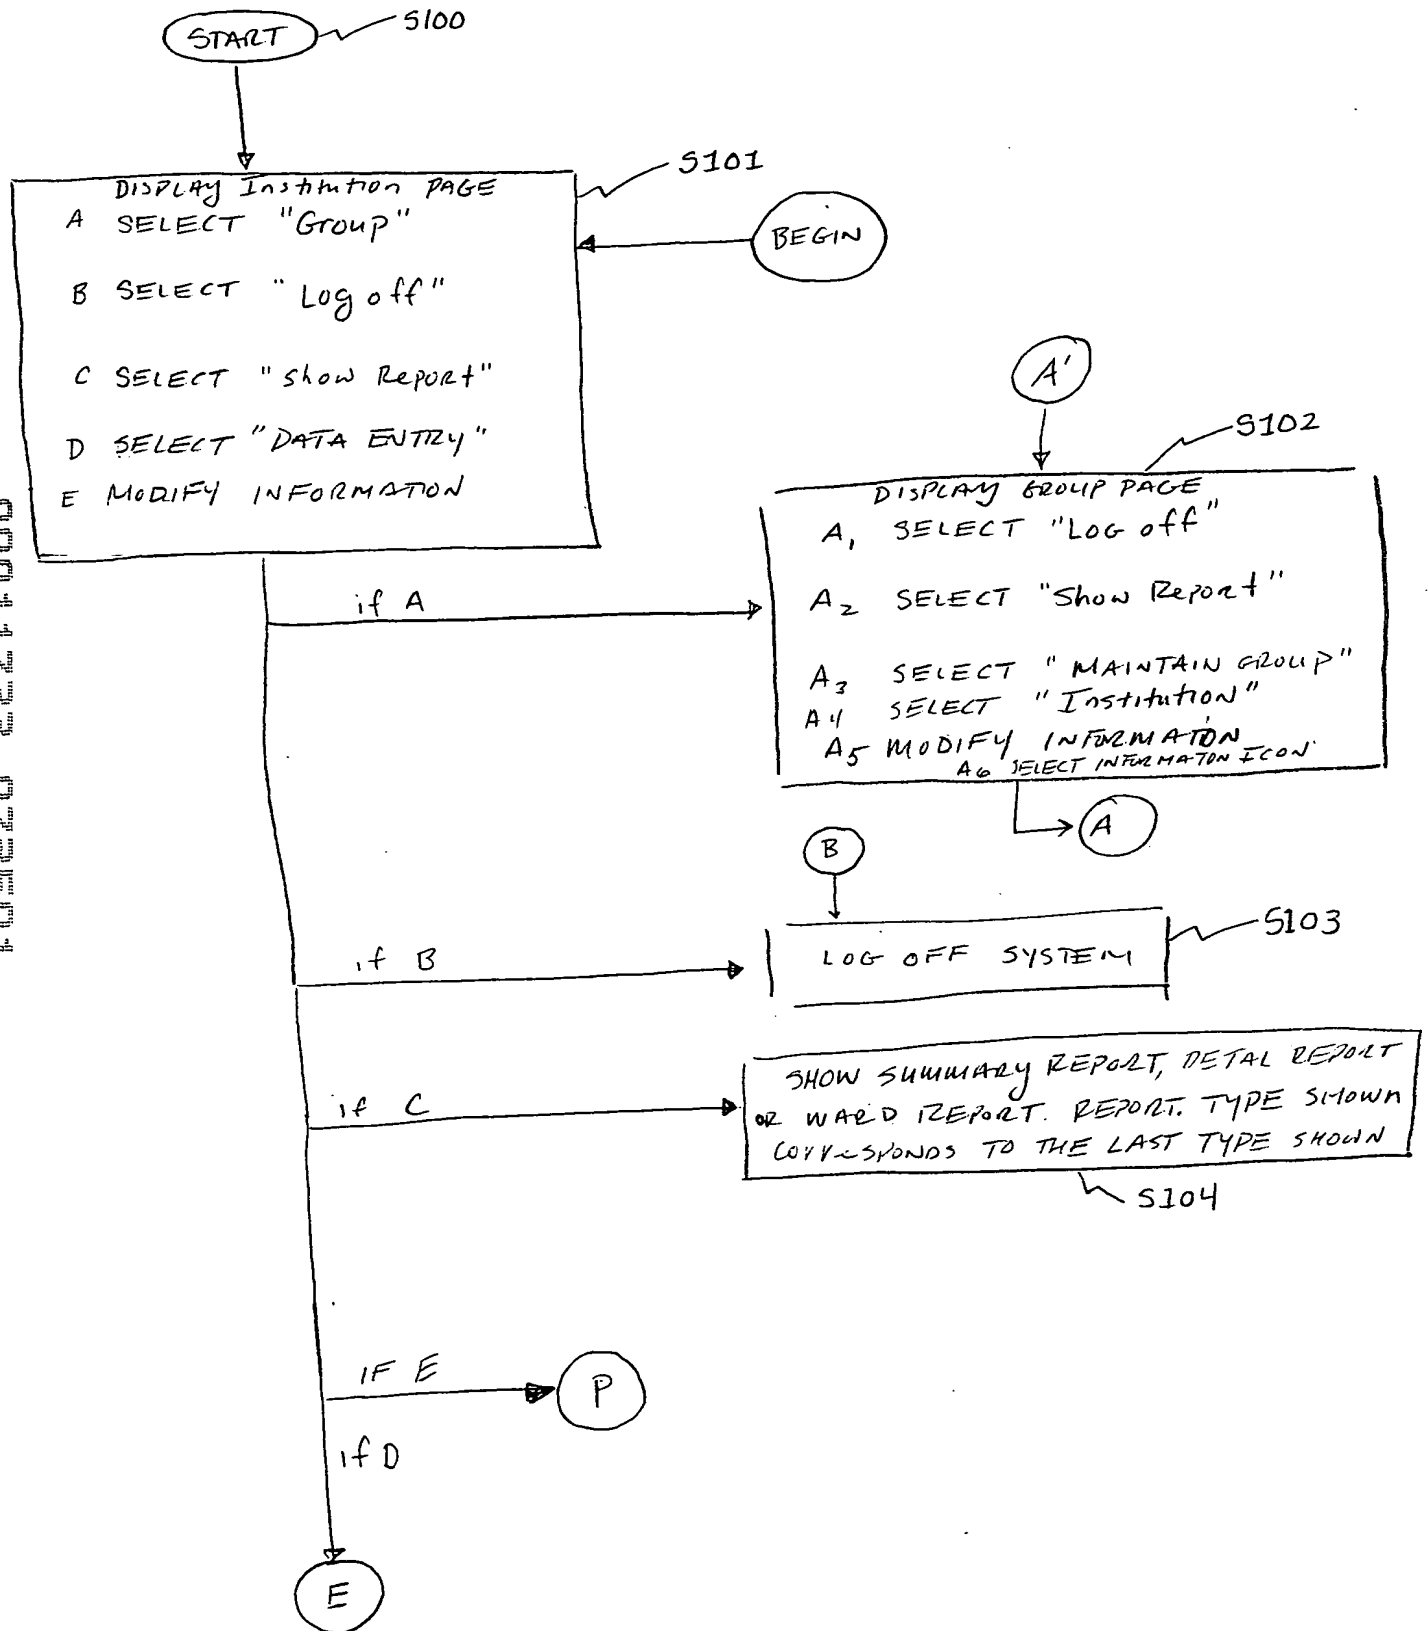 START
S100
S101
DISPLAY Institution PAGE
A SELECT "Group"
B SELECT "Log off"
C SELECT "show Report"
D SELECT "DATA ENTRY"
E MODIFY INFORMATION
BEGIN
A'
S102
DISPLAY GROUP PAGE
A1 SELECT "LOG off"
A2 SELECT "Show Report"
A3 SELECT "MAINTAIN GROUP"
A4 SELECT "Institution"
A5 MODIFY INFORMATON
A6 SELECT INFORMATON ICON
if A
A
B
S103
LOG OFF SYSTEM
if B
SHOW SUMMARY REPORT, DETAL REPORT
OR WARD REPORT. REPORT. TYPE SHOWN
CORRESPONDS TO THE LAST TYPE SHOWN
if C
S104
IF E
P
if D
E